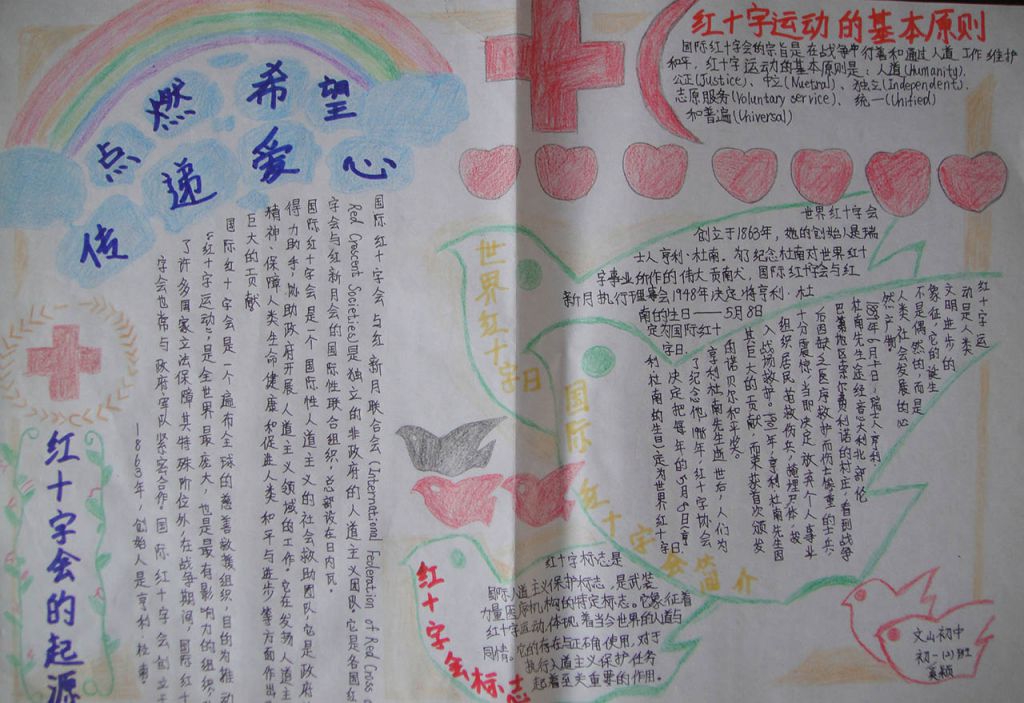 点燃希望
传递爱心
红十字运动的基本原则
国际红十字会的宗旨是在战争中行善和通过人道工作维护
和平，红十字运动的基本原则是：人道(Humanity)、
公正(Justice)、中立(Nuetral)、独立(Independent)、
志愿服务(Voluntary service)、统一(Unified)
和普遍(Universal)
红十字会的起源
国际红十字会与红新月联合会(International Federation of Red Cross
Red Crescent Societies)是独立的非政府的人道主义团队,它是各国红
字会与红新月会的国际性联合组织,总部设在日内瓦。
国际红十字会是一个国际性人道主义的社会救助团队,它是政府
得力助手,协助政府开展人道主义领域的工作。它在发扬人道主
精神、保障人类生命健康和促进人类和平与进步等方面作出
巨大的贡献
国际红十字会是一个遍布全球的慈善救援组织,目的为推动
"红十字运动",是全世界最庞大,也是最有影响力的组织,
了许多国家立法保障其特殊阶位外,在战争期间,国际红十
字会也常与政府军队紧密合作。国际红十字会创立于
1863年,创始人是亨利·杜南。
世界红十字日
世界红十字会
创立于1863年，她的创始人是瑞
士人亨利·杜南。为了纪念杜南对世界红十
字事业所作的伟大贡南大，国际红十字会与红
新月执行理事会1948年决定将亨利·杜
南的生日——5月8日
定为国际红十
字日。
国际红十字会简介
红十字运
动是人类
文明进步的
象征,它的诞生
不是偶然的,而是
人类社会发展的必
然产物。
1859年6月24日,瑞士人亨利·
杜南先生途经意大利北部伦
巴第地区索尔弗利诺的村庄,看到战争
后因缺乏医疗救护而伤亡惨重的士兵,
十分震惊,当即决定放弃个人事业
组织居民抢救伤兵,掩埋尸体,投
入战场救护。1901年,亨利杜南先生因
其巨大的贡献,而荣获首次颁发
的诺贝尔和平奖。
亨利杜南先生逝世后,人们为
了纪念他,1948年,红十字协会
决定把每年的5月8日,亨
利杜南的生日,定为世界红十字日。
红十字会标志
红十字标志是
国际人道主义保护标志，是武装
力量医疗机构的特定标志。它象征着
红十字运动,体现着当今世界的人道与
同情。它的存在与正确使用,对于
执行人道主义保护任务
起着至关重要的作用。
文山初中
初一(2)班